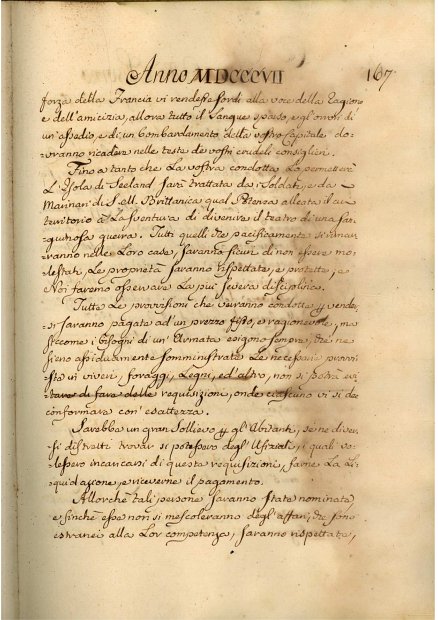 Anno MDCCCVII
167
forza della Francia vi rendesse sordi alla voce della Ragione
e dell'amicizia, allora tutto il Sangue sparso, e gl'orrori di
un'assedio, e di un bombardamento della vostra Capitale do-
vranno ricadere nelle teste de vostri crudeli consiglieri.
Fino a tanto che La vostra condotta Lo permetterà
L'Isola di Seeland sarà trattata da i Soldati, e da
Marinari di S. M. Brittanica qual Potenza alleata il cui
territorio à La sventura di divenire il teatro di una san-
guinosa guerra. Tutti quelli che pacificamente si rimar-
ranno nelle Loro case, saranno sicuri di non essere mo-
lestati, Le proprietà saranno rispettate, e protette, e
Noi faremo osservare La più severa disciplina.
Tutte Le provvisioni che verranno condotte p vender-
si saranno pagate ad'un prezzo fisso, e ragionevole, ma
siccome i bisogni di un'Armata esigono sempre, che ne
sieno assiduamente somministrate Le necessarie provvi-
ste in viveri, foraggi, Legni, ed'altro, non si potrà evi-
tare di fare delle requisizioni, onde ciascuno vi si de
conformare con'esattezza.
Sarebbe un gran sollievo p gl'Abitanti, se ne diver-
si distretti trovar si potessero degl'Ufiziali, i quali vo-
lessero incaricarsi di questa requisizioni, farne La Li-
quidazione, e riceverne il pagamento.
Allorchè tali persone saranno state nominate
e finchè esse non si mescoleranno degl'affari, che sono
estranei alla Lor competenza, saranno rispettate,